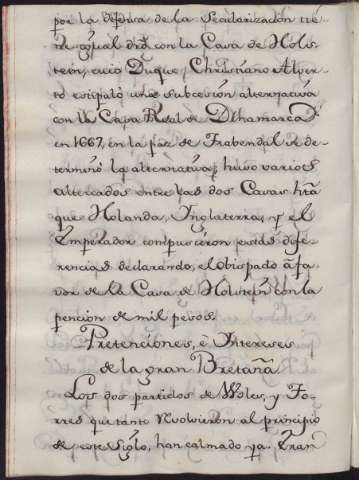 por la defensa de la Secularizacion tie-
ne igual dro. con la Casa de Hols-
tein, cuio Duque, Christiano Alver-
to estipuló una subcesion alternativa
con la Casa Real de Dinamarca
en 1667, en la paz de Frabendal se de-
terminó la alternativa; huvo varios
altercados entre las dos Casas hta.
que Holanda, Inglaterra, y el
Emperador compusieron estas dife-
rencias declarando, el obispado á fa-
vor de la Casa de Holstein con la
pencion de mil pesos.
Pretenciones, e Intereses
de la gran Bretaña
Los dos partidos de Woles, y To-
rres que tanto revolvieron al principio
de este Siglo, han calmado ya. Gran